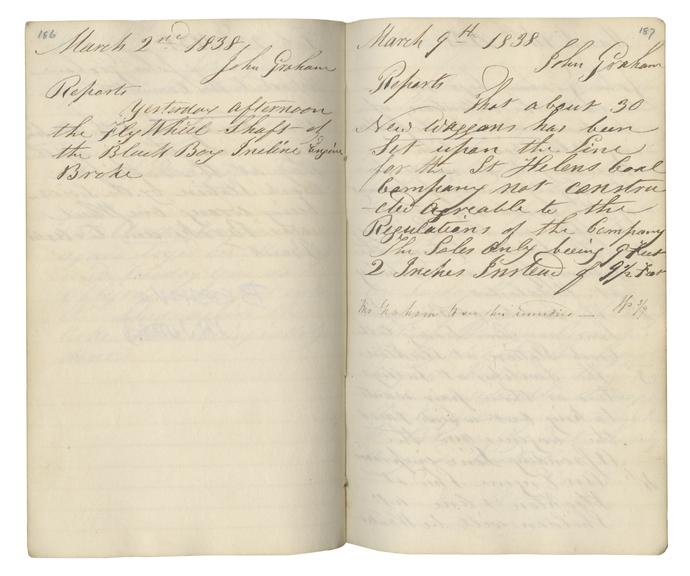 186
March 2nd 1838
John Graham
Reports
Yesterday afternoon
the fly Wheel Shaft of
the Black Boy Incline Engine
Broke
187
March 9th 1838
John Graham
Reports
That about 30
New Waggans has been
Set upon the Line
for the St Helens Coal
Company not constru
-cted agreable to the
Regulations of the Company
The Soles Only being 9 Feet
2 Inches Instead of 9½ Feet
Mr Graham